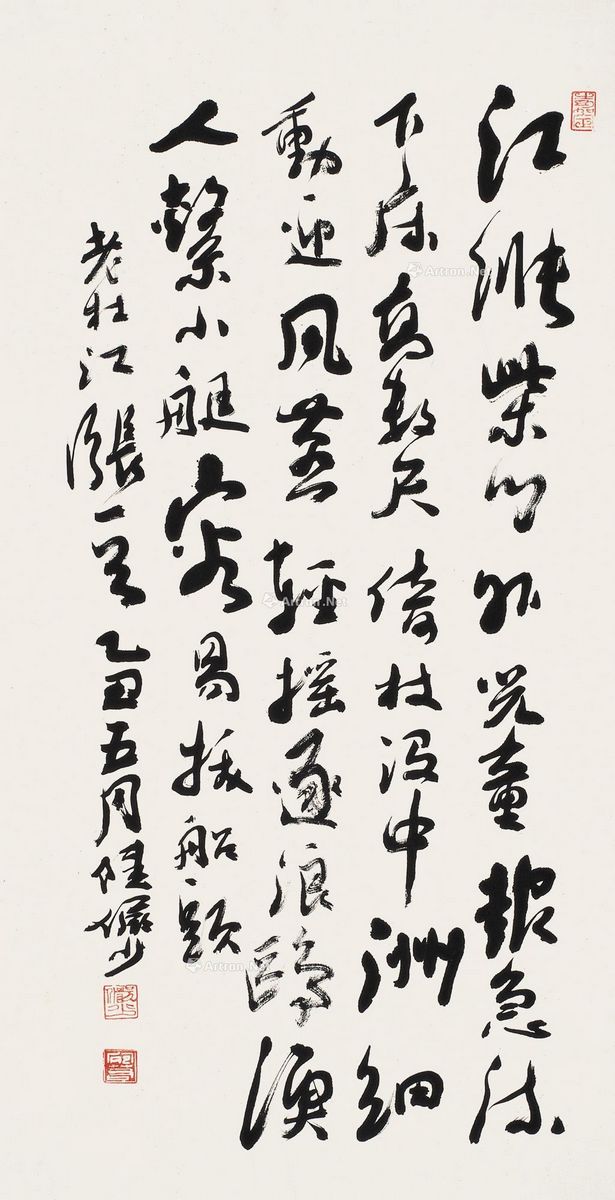 江漲柴門外兒童報急流
下床高數尺倚杖沒中洲細
動迎風燕輕搖逐浪鷗漁
人縈小艇容易拔船頭
老杜江漲一首乙丑五月陸儼少
Artron.Net
Artron.Net
Artron.Net